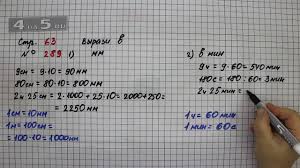 4 на 5.ru
Стр. 63 Вырази в
N° 289 1) мм
9см = 9·10 = 90 мм
80см = 80·10 = 800 мм
2м 25см = 2·1000 + 25·10 = 2000 + 250 =
= 2250 мм
1см = 10мм
1м = 100см =
= 100·10 = 1000мм
2) в мин
9ч = 9·60 = 540 мин
180с = 180:60 = 3 мин
2ч 25 мин =
1ч = 60 мин
1 мин = 60с